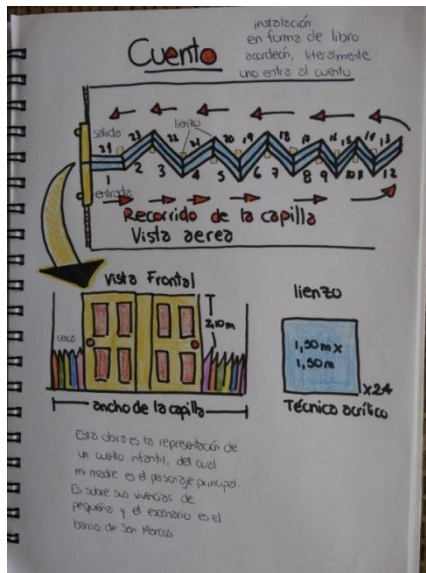 Cuento
instalación
en forma de libro
acordeón, literalmente
uno entra al cuento
salida
lienzo
24 23 22 21 20 19 18 17 16 15 14 13
1 2 3 4 5 6 7 8 9 10 11 12
entrada
Recorrido de la capilla
Vista aerea
Vista Frontal
2,10m
ancho de la capilla
lienzo
1,50m x
1,50m
x24
Técnica acrílico
Esta obra es la representación de
un cuento infantil, del cual
mi madre es el personaje principal.
Es sobre sus vivencias de
pequeña y el escenario es el
barrio de San Marcos